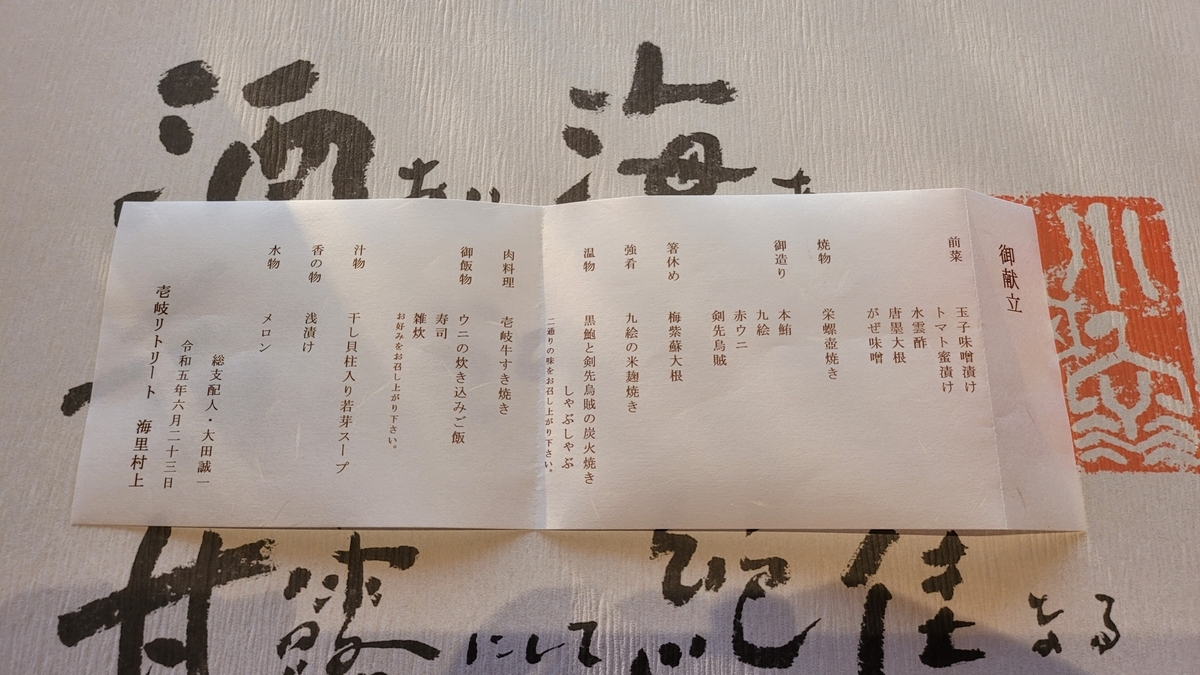 御献立
前菜
玉子味噌漬け
トマト蜜漬け
水雲酢
唐墨大根
がぜ味噌
焼物
栄螺壺焼き
御造り
本鮪
九絵
赤ウニ
剣先烏賊
箸休め
梅紫蘇大根
強肴
九絵の米麹焼き
温物
黒鮑と剣先烏賊の炭火焼き
しゃぶしゃぶ
二通りの味をお召し上がり下さい。
肉料理
壱岐牛すき焼き
御飯物
ウニの炊き込みご飯
寿司
雑炊
お好みをお召し上がり下さい。
汁物
干し貝柱入り若芽スープ
香の物
浅漬け
水物
メロン
総支配人・大田誠一
令和五年六月二十三日
壱岐リトリート 海里村上
海
酒
佳
なる
にして
甘